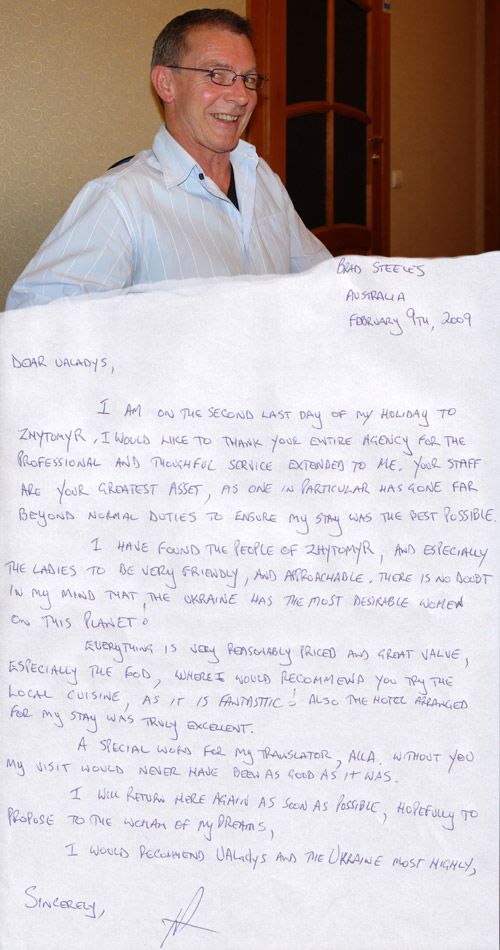 BRAD STEELES
AUSTRALIA
FEBRUARY 9TH, 2009
DEAR UALADYS,
I AM ON THE SECOND LAST DAY OF MY HOLIDAY TO
ZHYTOMYR, I WOULD LIKE TO THANK YOUR ENTIRE AGENCY FOR THE
PROFESSIONAL AND THOUGHFUL SERVICE EXTENDED TO ME. YOUR STAFF
ARE YOUR GREATEST ASSET, AS ONE IN PARTICULAR HAS GONE FAR
BEYOND NORMAL DUTIES TO ENSURE MY STAY WAS THE BEST POSSIBLE.
I HAVE FOUND THE PEOPLE OF ZHYTOMYR, AND ESPECIALLY
THE LADIES TO BE VERY FRIENDLY, AND APPROACHABLE. THERE IS NO DOUBT
IN MY MIND THAT, THE UKRAINE HAS THE MOST DESIRABLE WOMEN
ON THIS PLANET!
EVERYTHING IS VERY REASONABLY PRICED AND GREAT VALUE,
ESPECIALLY THE FOOD, WHERE I WOULD RECOMMEND YOU TRY THE
LOCAL CUISINE, AS IT IS FANTASTIC! ALSO THE HOTEL ARRANGED
FOR MY STAY WAS TRULY EXCELLENT.
A SPECIAL WORD FOR MY TRANSLATOR, ALLA. WITHOUT YOU
MY VISIT WOULD NEVER HAVE BEEN AS GOOD AS IT WAS.
I WILL RETURN HERE AGAIN AS SOON AS POSSIBLE, HOPEFULLY TO
PROPOSE TO THE WOMAN OF MY DREAMS,
I WOULD RECOMMEND UALADYS AND THE UKRAINE MOST HIGHLY,
SINCERELY,